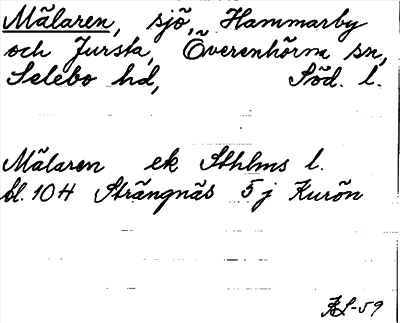 Mälaren, sjö, Hammarby
och Jursta, Överenhörna sn,
Selebo hd, Söd. l.
Mälaren ek Sthlms l.
bl. 104 Strängnäs 5 j Kurön
-59